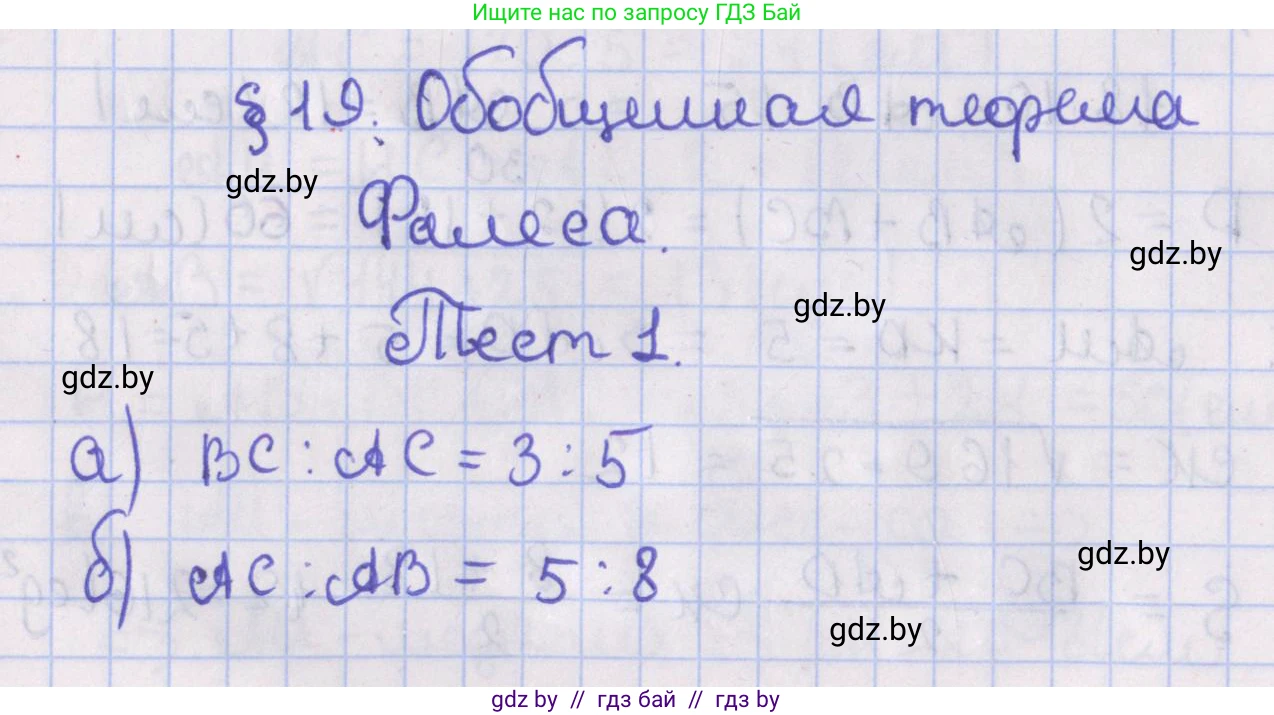 Ищите нас по запросу ГДЗ Бай
§ 19. Обобщенная теорема
gdz.by
Фалеса.
gdz.by
gdz.by
Тест 1.
gdz.by
а) BC : AC = 3 : 5
б) AC : AB = 5 : 8
gdz.by
gdz.by
gdz by // гдз бай // гдз by